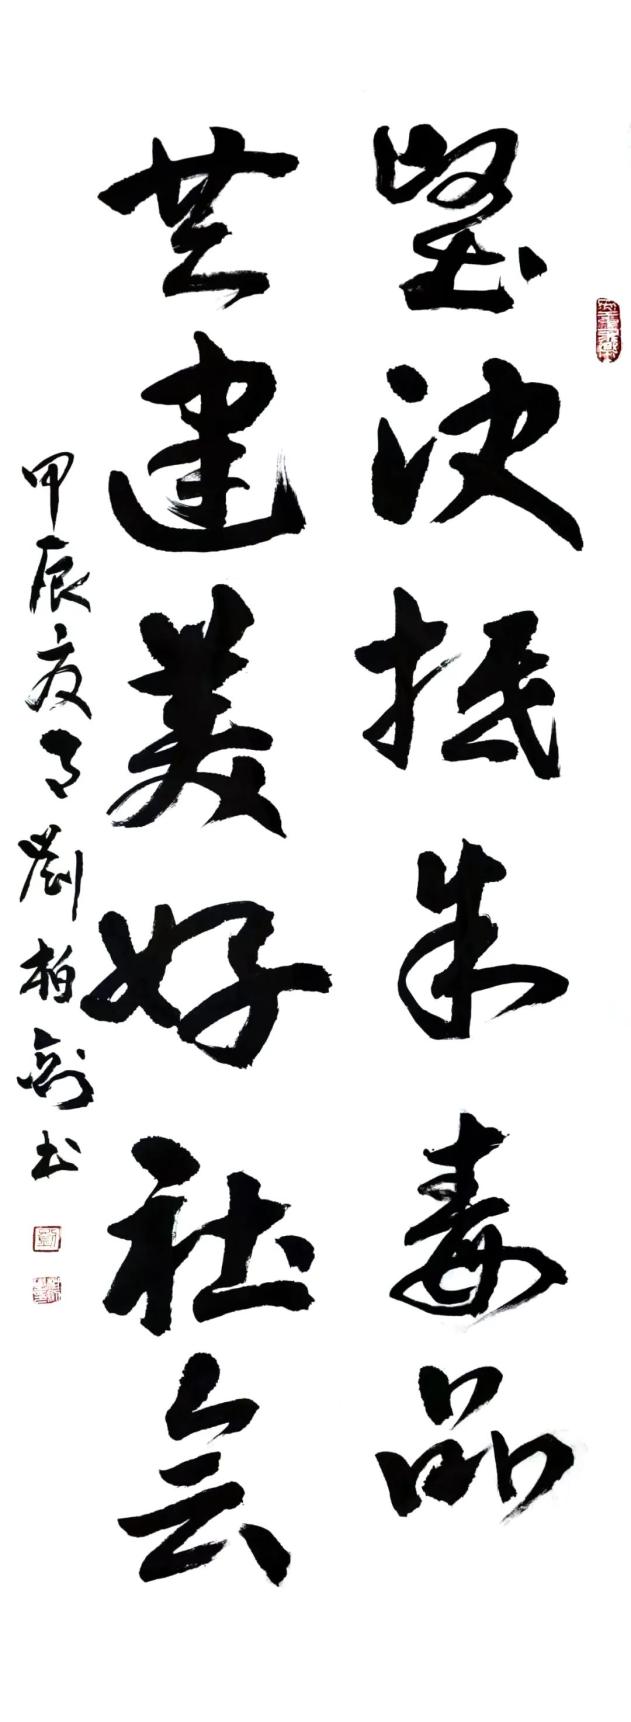 坚决抵制毒品
共建美好社会
甲辰夏月劉柏剑书